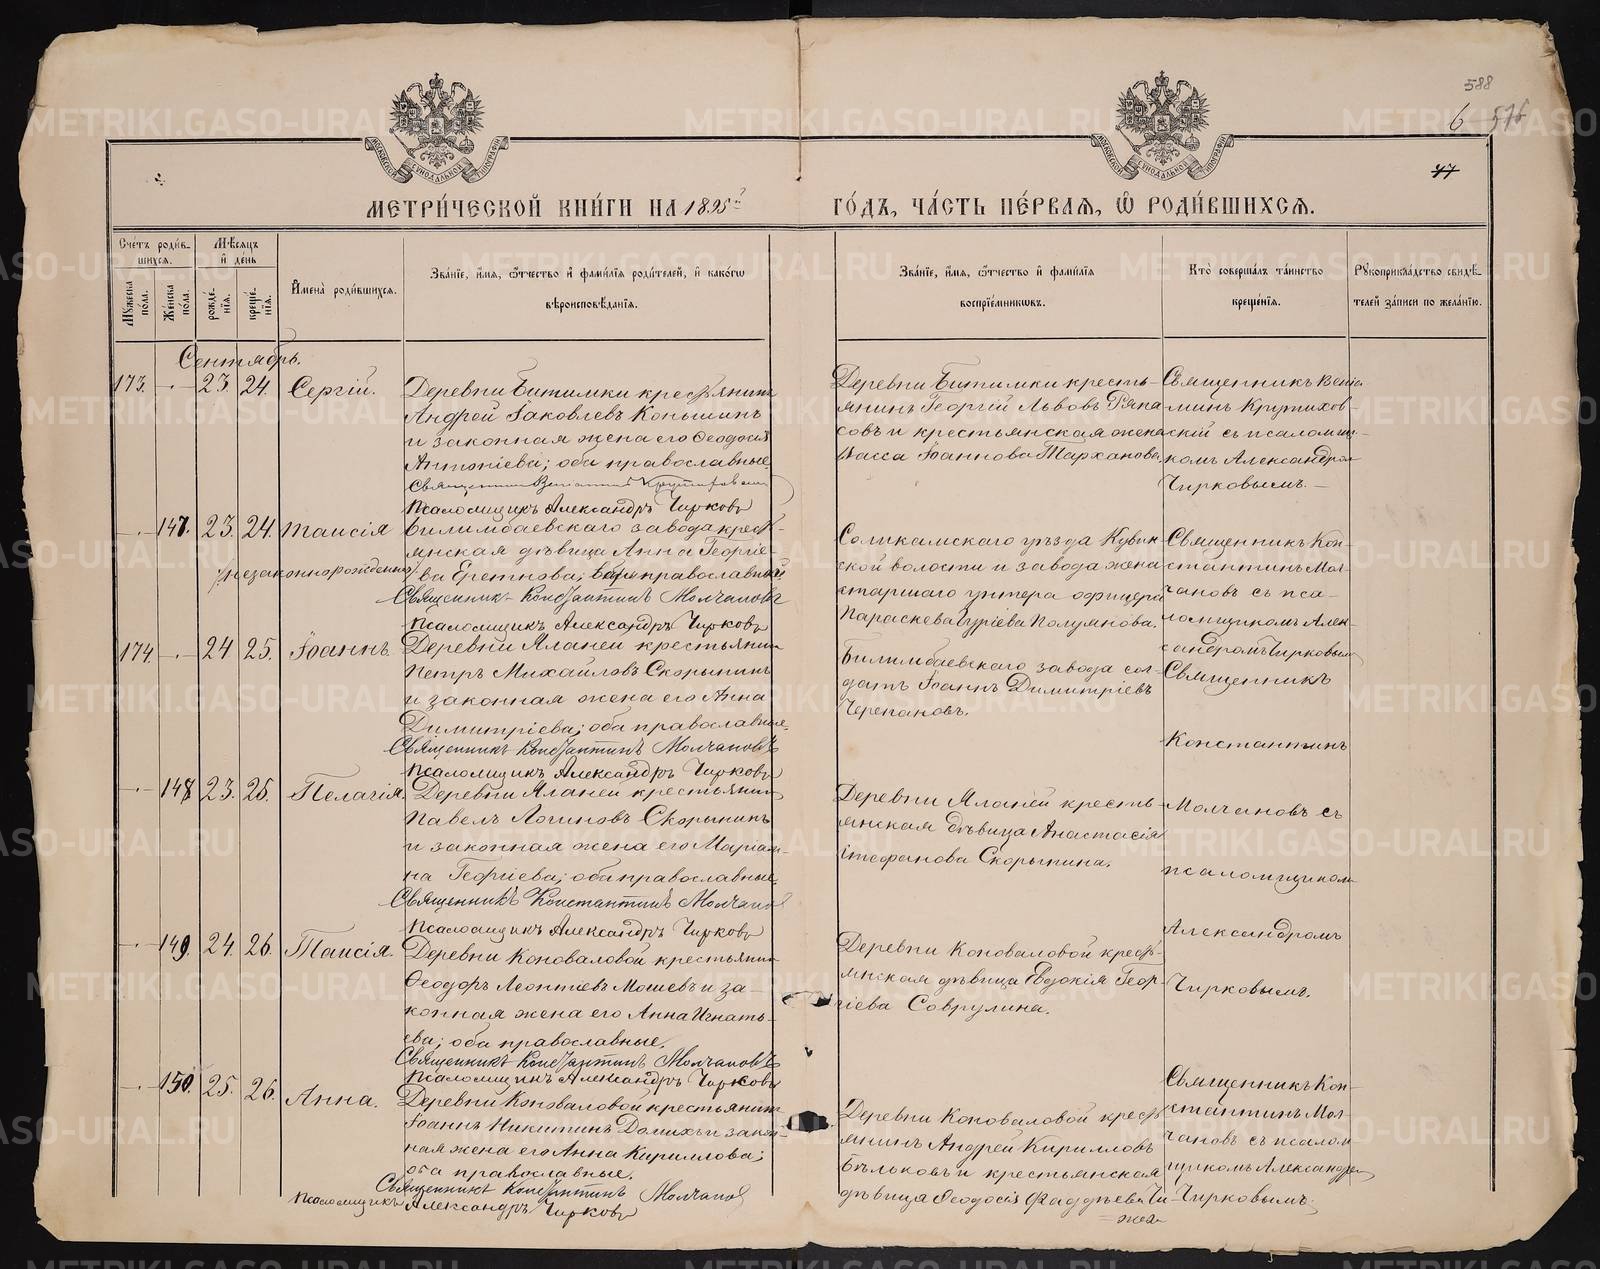 588
6 576
47
МОСКОВСКОЙ СѴНОДАЛЬНОЙ ТИПОГРАФІИ
МОСКОВСКОЙ СѴНОДАЛЬНОЙ ТИПОГРАФІИ
МЕТРИ́ЧЕСКОЙ КНИ́ГИ НА 1895й ГО́ДЪ, ЧА́СТЬ ПЕ́РВАЯ, Ѽ РОДИ́ВШИХСЯ.
Сче́тъ роди́в-
шихся.
Мѣ́сяцъ
и҆ де́нь
Мꙋ́жеска по́ла.
Же́нска по́ла.
рожде́-
нїя.
креще́-
нїя.
И҆мена̀ роди́вшихся.
Зва́нїе, и҆́мя, ѻ҆́тчество и҆ фами́лїя роди́телей, и҆ како́гѡ
вѣроисповѣ́данїя.
Зва́нїе, и҆́мя, ѻ҆́тчество и҆ фами́лїя
воспрїе́мникѡвъ.
Кто̀ соверша́лъ та́инство
креще́нїя.
Рꙋкоприкла́дство свидѣ́-
телей за́писи по жела́нїю.
Сентябрь.
173. —.— 23. 24. Сергій.
Деревни Битимки крестьянинъ
Андрей Іаковлевъ Коньшинъ
и законная жена его Ѳеодосія
Антоніева; оба православные.
Священникъ Веніаминъ Крутиховскій
Псаломщикъ Александръ Чирковъ
Деревни Битимки кресть-
янинъ Георгій Львовъ Ряпа
совъ и крестьянская жена
Васса Іоаннова Тарханова.
Священникъ Веніа-
минъ Крутихов-
скій съ псаломщи-
комъ Александром
Чирковымъ. —
—.— 147. 23. 24. Таисія
(незаконнорожденна)
Билимбаевскаго завода кресть-
янская дѣвица Анна Георгіе-
ва Еретнова; православная
Священникъ Константинъ Молчановъ
Псаломщикъ Александръ Чирковъ
Соликамскаго уѣзда Кувин-
ской волости и завода жена
старшаго унтера офицера
Параскева Гуріева Полуянова.
Священникъ Кон-
стантинъ Мол-
чановъ съ пса-
ломщикомъ Алек-
сандромъ Чирковым
174. —.— 24 25. Іоаннъ.
Деревни Яланеи крестьянин
Петръ Михайловъ Скорынинъ
и законная жена его Анна
Димитріева; оба православные.
Священникъ Константинъ Молчановъ
Псаломщикъ Александръ Чирковъ
Билимбаевскаго завода сол-
датъ Іоаннъ Димитріевъ
Черепановъ.
Священникъ
Константинъ
—.— 148 23. 25. Пелагія.
Деревни Яланеи крестьянин
Павелъ Логиновъ Скорынинъ
и законная жена его Маріам-
на Георгіева; оба православные.
Священникъ Константинъ Молчановъ
Псаломщикъ Александръ Чирковъ
Деревни Яланеи кресть-
янская дѣвица Анастасія
Стефанова Скорынина.
Молчановъ съ
псаломщиком
—.— 149. 24. 26. Таисія.
Деревни Коноваловой крестьянин
Ѳеодоръ Леонтіевъ Мошевъ и за-
конная жена его Анна Игнать-
ева; оба православные.
Священникъ Константинъ Молчановъ
Псаломщикъ Александръ Чирковъ
Деревни Коноваловой кресть-
янская дѣвица Евдокія Геор-
гіева Соврулина.
Александромъ
Чирковымъ.
—.— 150. 25. 26. Анна.
Деревни Коноваловой крестьянин
Іоаннъ Никитинъ и закон-
ная жена его Анна Кириллова;
оба православные.
Священникъ Константинъ Молчановъ
Псаломщикъ Александръ Чирковъ
Деревни Коноваловой кресть
янинъ Андрей Кирилловъ
Бѣльковъ и крестьянская
дѣвица Ѳеодосія Ѳаддѣева Чи-
жева
Священникъ Кон-
стантинъ Мол-
чановъ съ псалом
щикомъ Александром
Чирковымъ.
METRIKI.GASO-URAL.RU